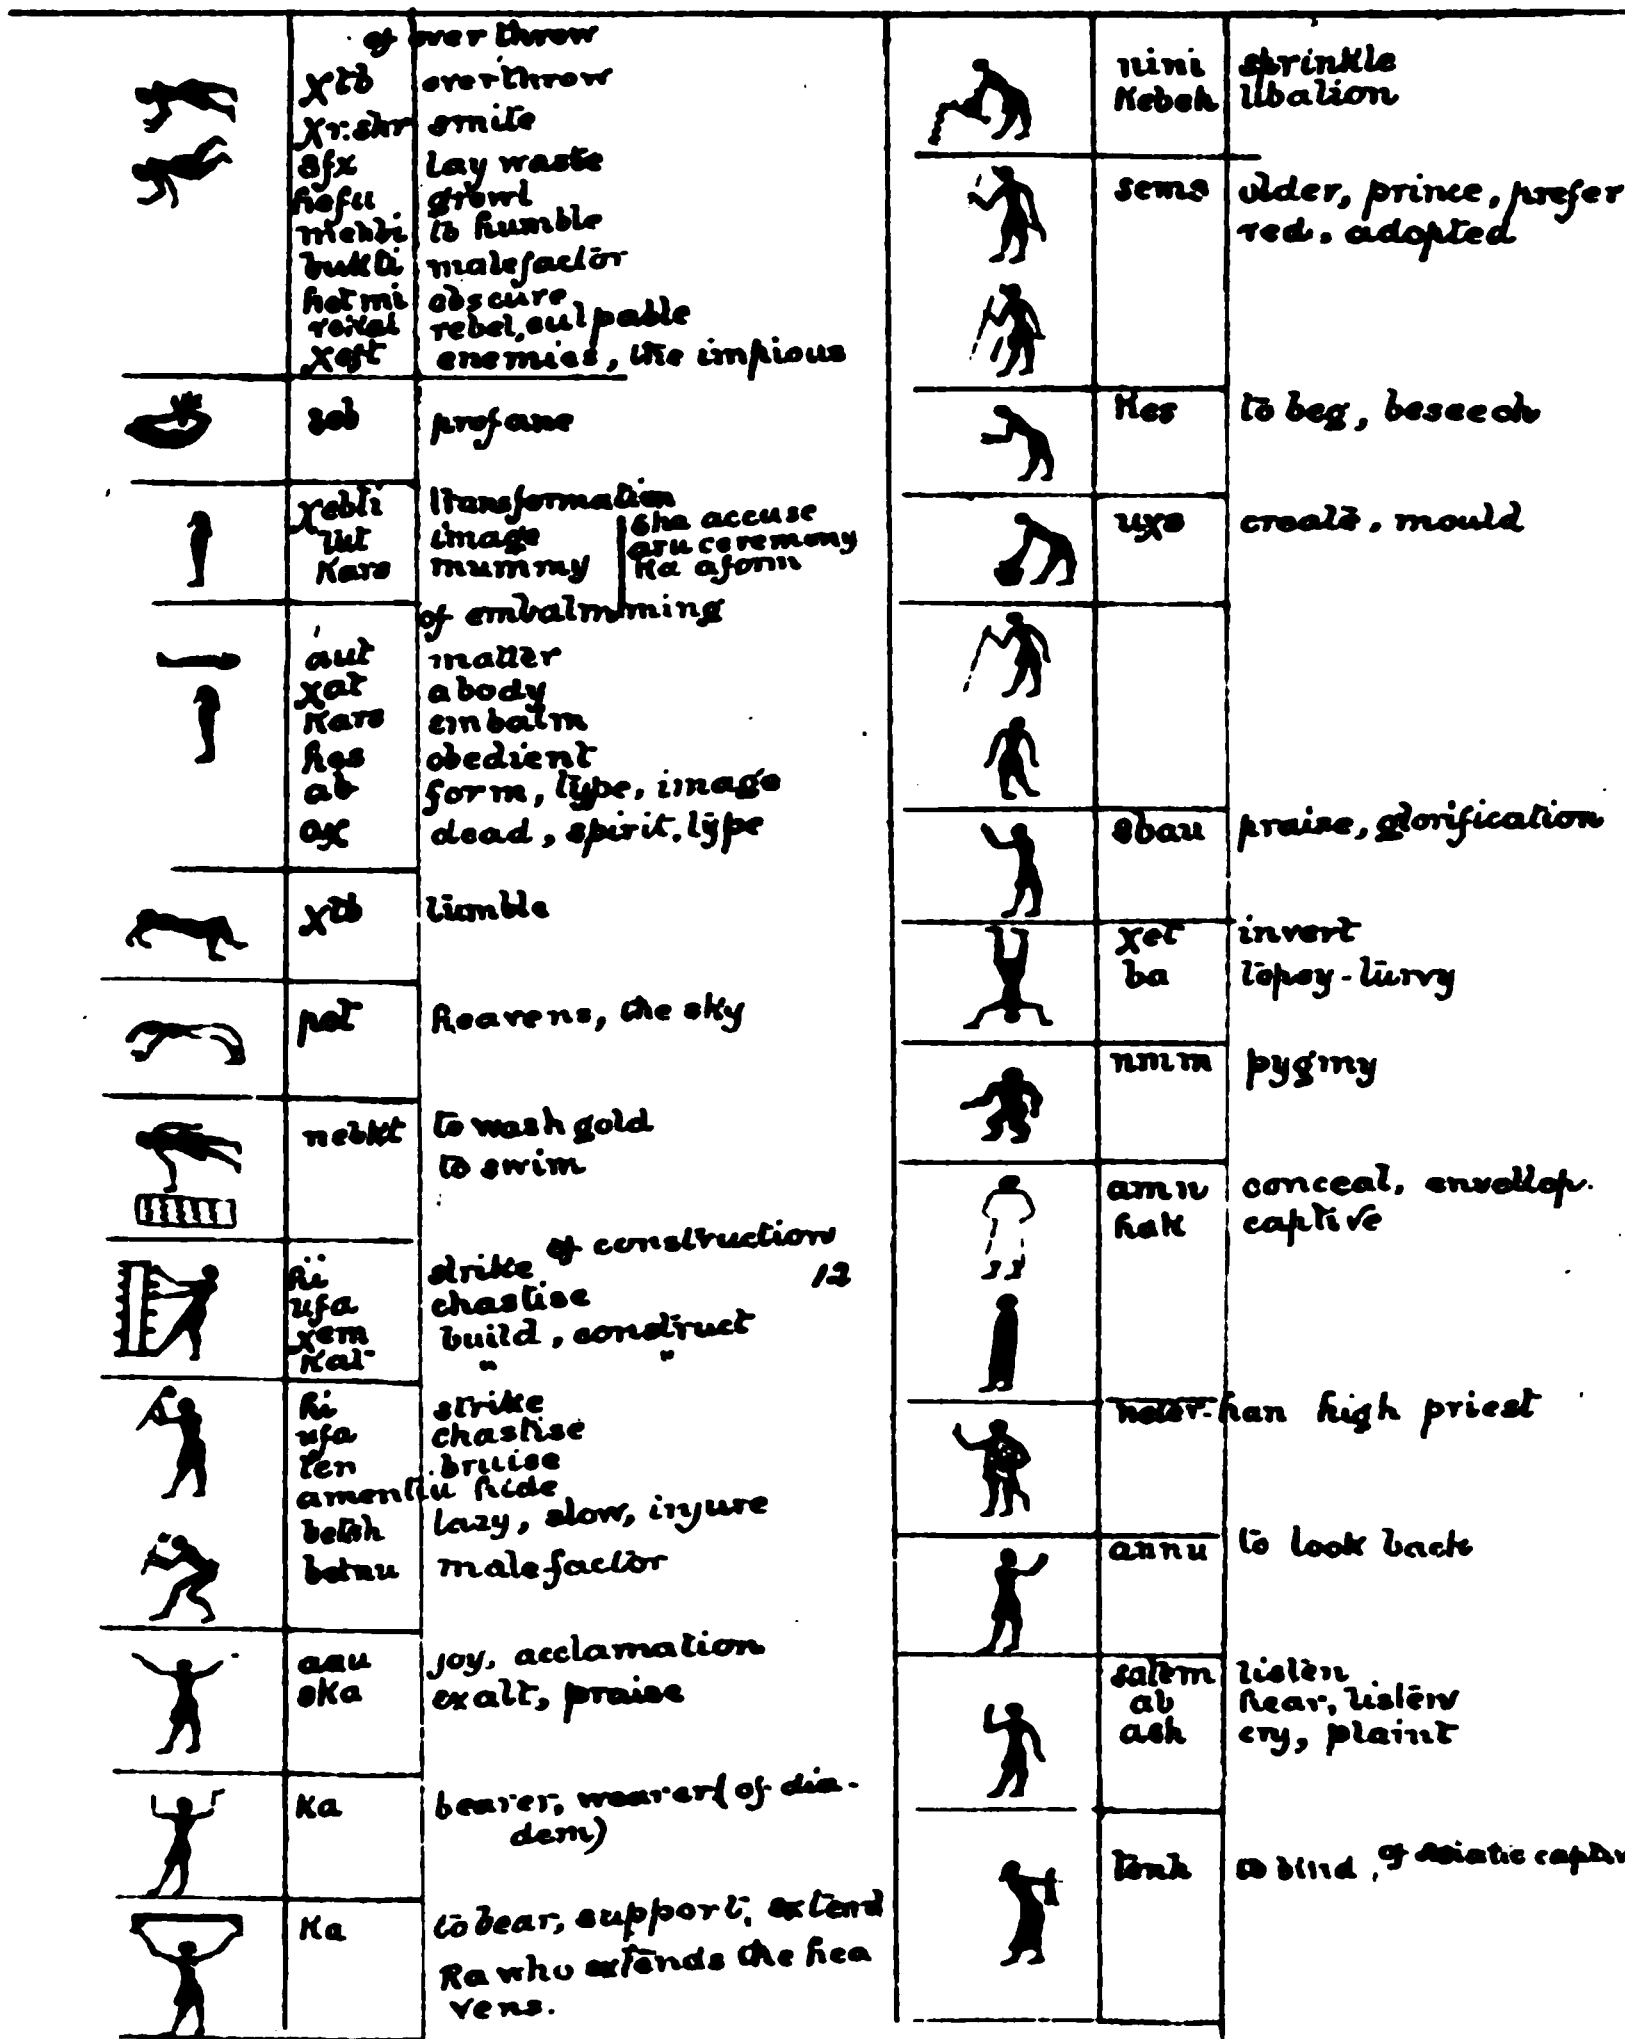 of overthrow
χtb overthrow
χr:shr smite
sfx lay waste
hefu growl
mehbi to humble
bukti malefactor
hetmi obscure
rebel, culpable
χeft enemies, the impious
seb profane
χebti transformation
tut image
Kars mummy
sha accuse
aru ceremony
Ka a form
of embalmming
áut matter
χat a body
Kars embalm
hes obedient
ab form, type, image
aχ dead, spirit, type
χtb tumble
pet heavens, the sky
nebkt to wash gold
to swim
of construction
hi strike
12
ufa chastise
χem build, construct
Kat " "
hi strike
ufa chastise
ten bruise
amentiu hide
betsh lazy, slow, injure
betnu malefactor
aau joy, acclamation
sKa exalt, praise
Ka bearer, wearer (of dia-
dem)
Ka to bear, support, extend
Ra who extends the hea
vens.
nini sprinkle
Kebeh libation
sems older, prince, prefer
red, adopted
Kes to beg, beseech
uχs create, mould
sbau praise, glorification
χet invert
ba topsy-turvy
nmm pygmy
amn conceal, envellop.
haK captive
neter-han high priest
annu to look back
satem listen
ab hear, listen
ash cry, plaint
tenh to bind, of Asiatic captiv